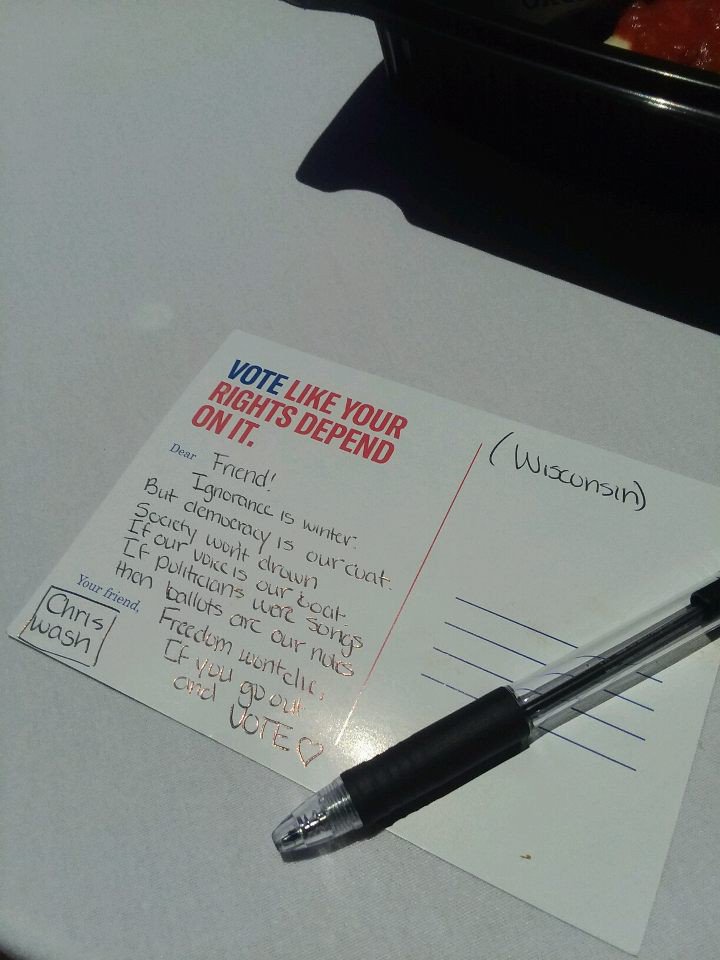 VOTE LIKE YOUR
RIGHTS DEPEND
ON IT.
Dear Friend!
Ignorance is winter.
But democracy is our coat.
Society won't drown
If our voice is our boat.
If politicians were songs
then ballots are our notes
Freedom won't die,
If you go out
and VOTE ♡
Your friend,
Chris
wash
(Wisconsin)